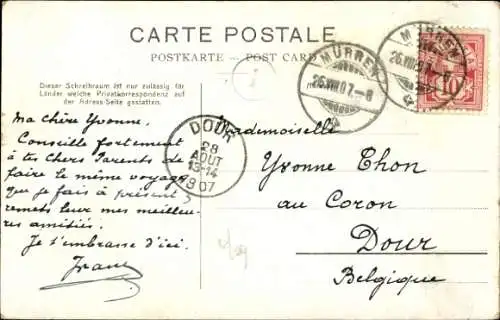 CARTE POSTALE
POSTKARTE — POST CARD
Dieser Schreibraum ist nur zulässig für
Länder welche Privatkorrespondenz auf
der Adress-Seite gestatten.
MÜRREN
26.VIII.07.-8
MÜRREN
26.VIII.07.-8
10
DOUR
28
AOUT
13-14
1907
Ma chère Yvonne.
Conseille fortement
à tes chers Parents de
faire le même voyage
que je fais à présent;
remets leur mes meilleu-
res amitiés.
Je t'embrasse d'ici.
Mademoiselle
Yvonne Thon
au Coron
Dour
Belgique